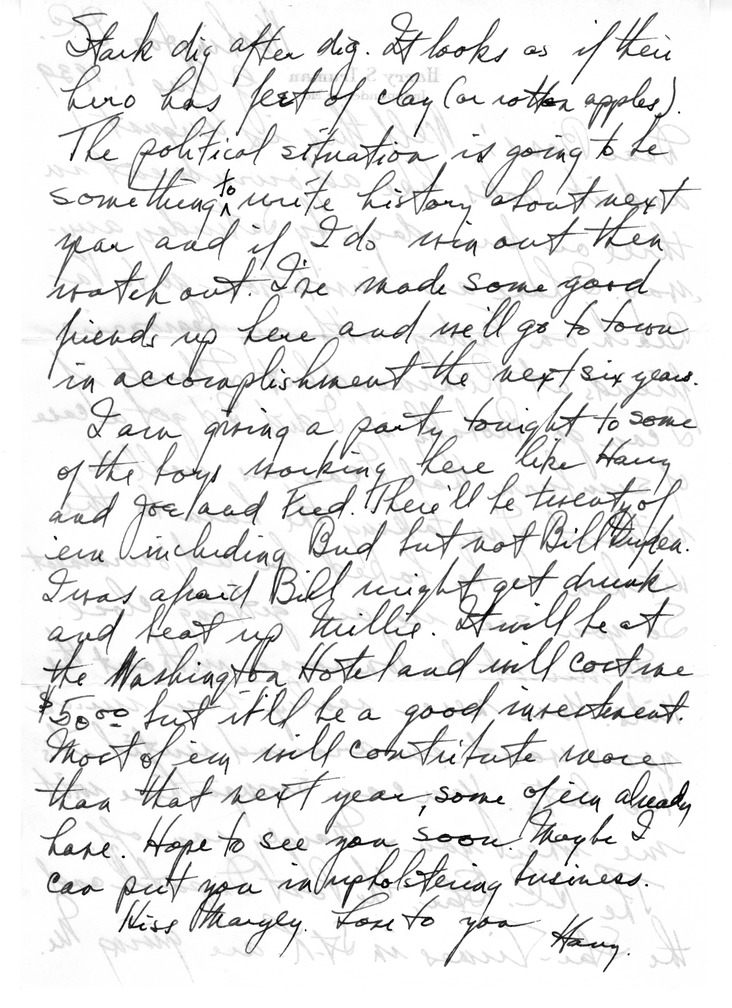 Stark dig after dig. It looks as if their
hero has feet of clay (or rotten apples).
The political situation is going to be
something to write history about next
year and if I do win out then
watch out. I've made some good
friends up here and we'll go to town
in accomplishment the next six years.
I am giving a party tonight to some
of the boys working here like Harry
and Joe and Fred. There'll be twenty of
'em including Bud but not Bill
I was afraid Bill might get drunk
and beat up Millie. It will be at
the Washington Hotel and will cost me
$50.00 but it'll be a good investment.
Most of 'em will contribute more
than that next year, some of 'em already
have. Hope to see you soon. Maybe I
can put you in upholstering business.
Kiss Margey. Love to you
Harry.